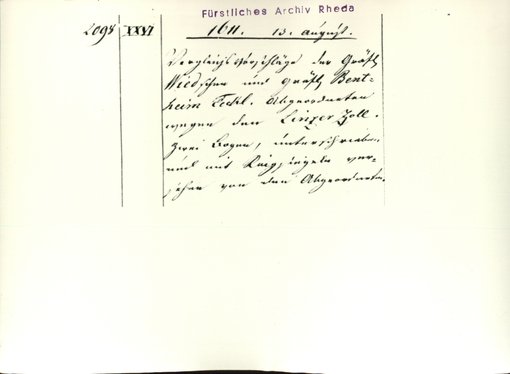 Fürstliches Archiv Rheda
2098 XXVI 1611. 13. August.
Vergleichs Vorschläge der Gräfl.
Wiedschen und Gräfl. Bent-
heim Teckl. Abgeordneten
wegen den Linzer Zoll.
Zwei Bogen, unterschrieben
und mit Ringsiegeln ver-
sehen von den Abgeordneten.